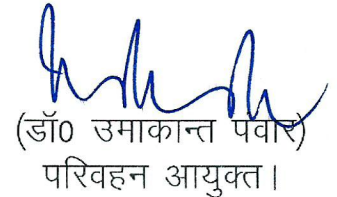 (डॉ0 उमाकान्त पंवार)
परिवहन आयुक्त।